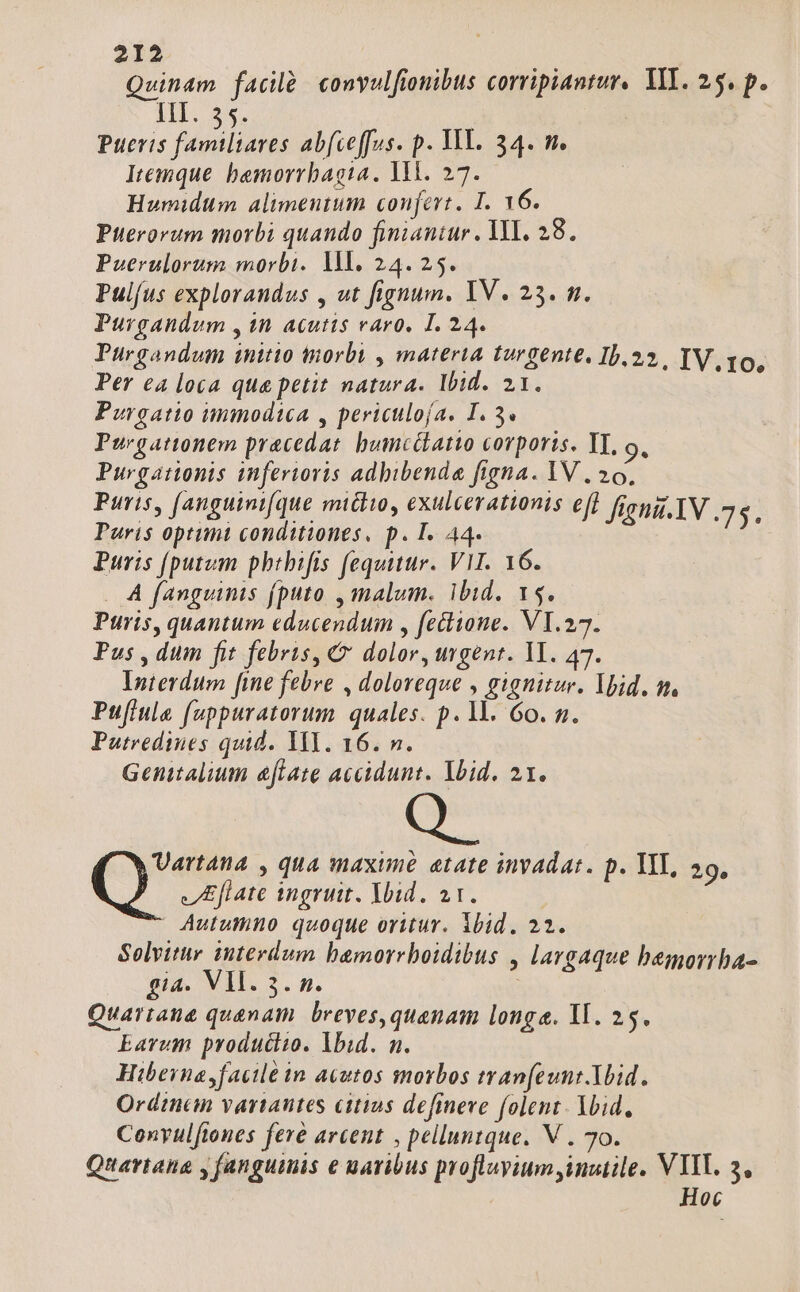 212
Quinam facilè convulſionibus corripiantur. III. 25. p.
III. 35.
Pueris familiares abſceſſus. p. III. 34. n.
Itemque hæmorrhagia. III. 27.
Humidum alimentum confert. I. 16.
Puerorum morbi quando finiantur. III. 28.
Puerulorum morbi. III. 24. 25.
Pulſus explorandus , ut ſignum. IV. 23. n.
Purgandum , in acutis raro. I. 24.
Purgandum initio morbi , materia turgente. Ib. 22. IV. 10.
Per ea loca quæ petit natura. Ibid. 21.
Purgatio immodica , periculoſa. I. 3.
Purgationem præcedat humectatio corporis. II. 9.
Purgationis inferioris adhibendæ ſigna. IV. 20.
Puris, ſanguiniſque mictio, exulcerationis eſt ſignū. IV. 75.
Puris optimi conditiones. p. I. 44.
Puris ſputum phthiſis ſequitur. VII. 16.
A ſanguinis ſputo , malum. ibid. 15.
Puris, quantum educendum , ſectione. VI. 27.
Pus , dum fit febris, & dolor, urgent. II. 47.
Interdum ſine febre , doloreque , gignitur. Ibid. n.
Puſtulæ ſuppuratorum quales. p. II. 60. n.
Putredines quid. III. 16. n.
Genitalium æſtate accidunt. Ibid. 21.
Q
QUartana , qua maximè ætate invadat. p. III. 29.
Æſtate ingruit. Ibid. 21.
Autumno quoque oritur. Ibid. 22.
Solvitur interdum hæmorrhoidibus , largaque hæmorrha-
gia. VII. 3. n.
Quartanæ quænam breves, quænam longæ. II. 25.
Earum productio. Ibid. n.
Hibernæ, facilè in acutos morbos tranſeunt. Ibid.
Ordinem variantes citius deſinere ſolent. Ibid.
Convulſiones ferè arcent , pelluntque. V. 70.
Quartanæ , ſanguinis e naribus profluvium, inutile. VIII. 3.
Hoc